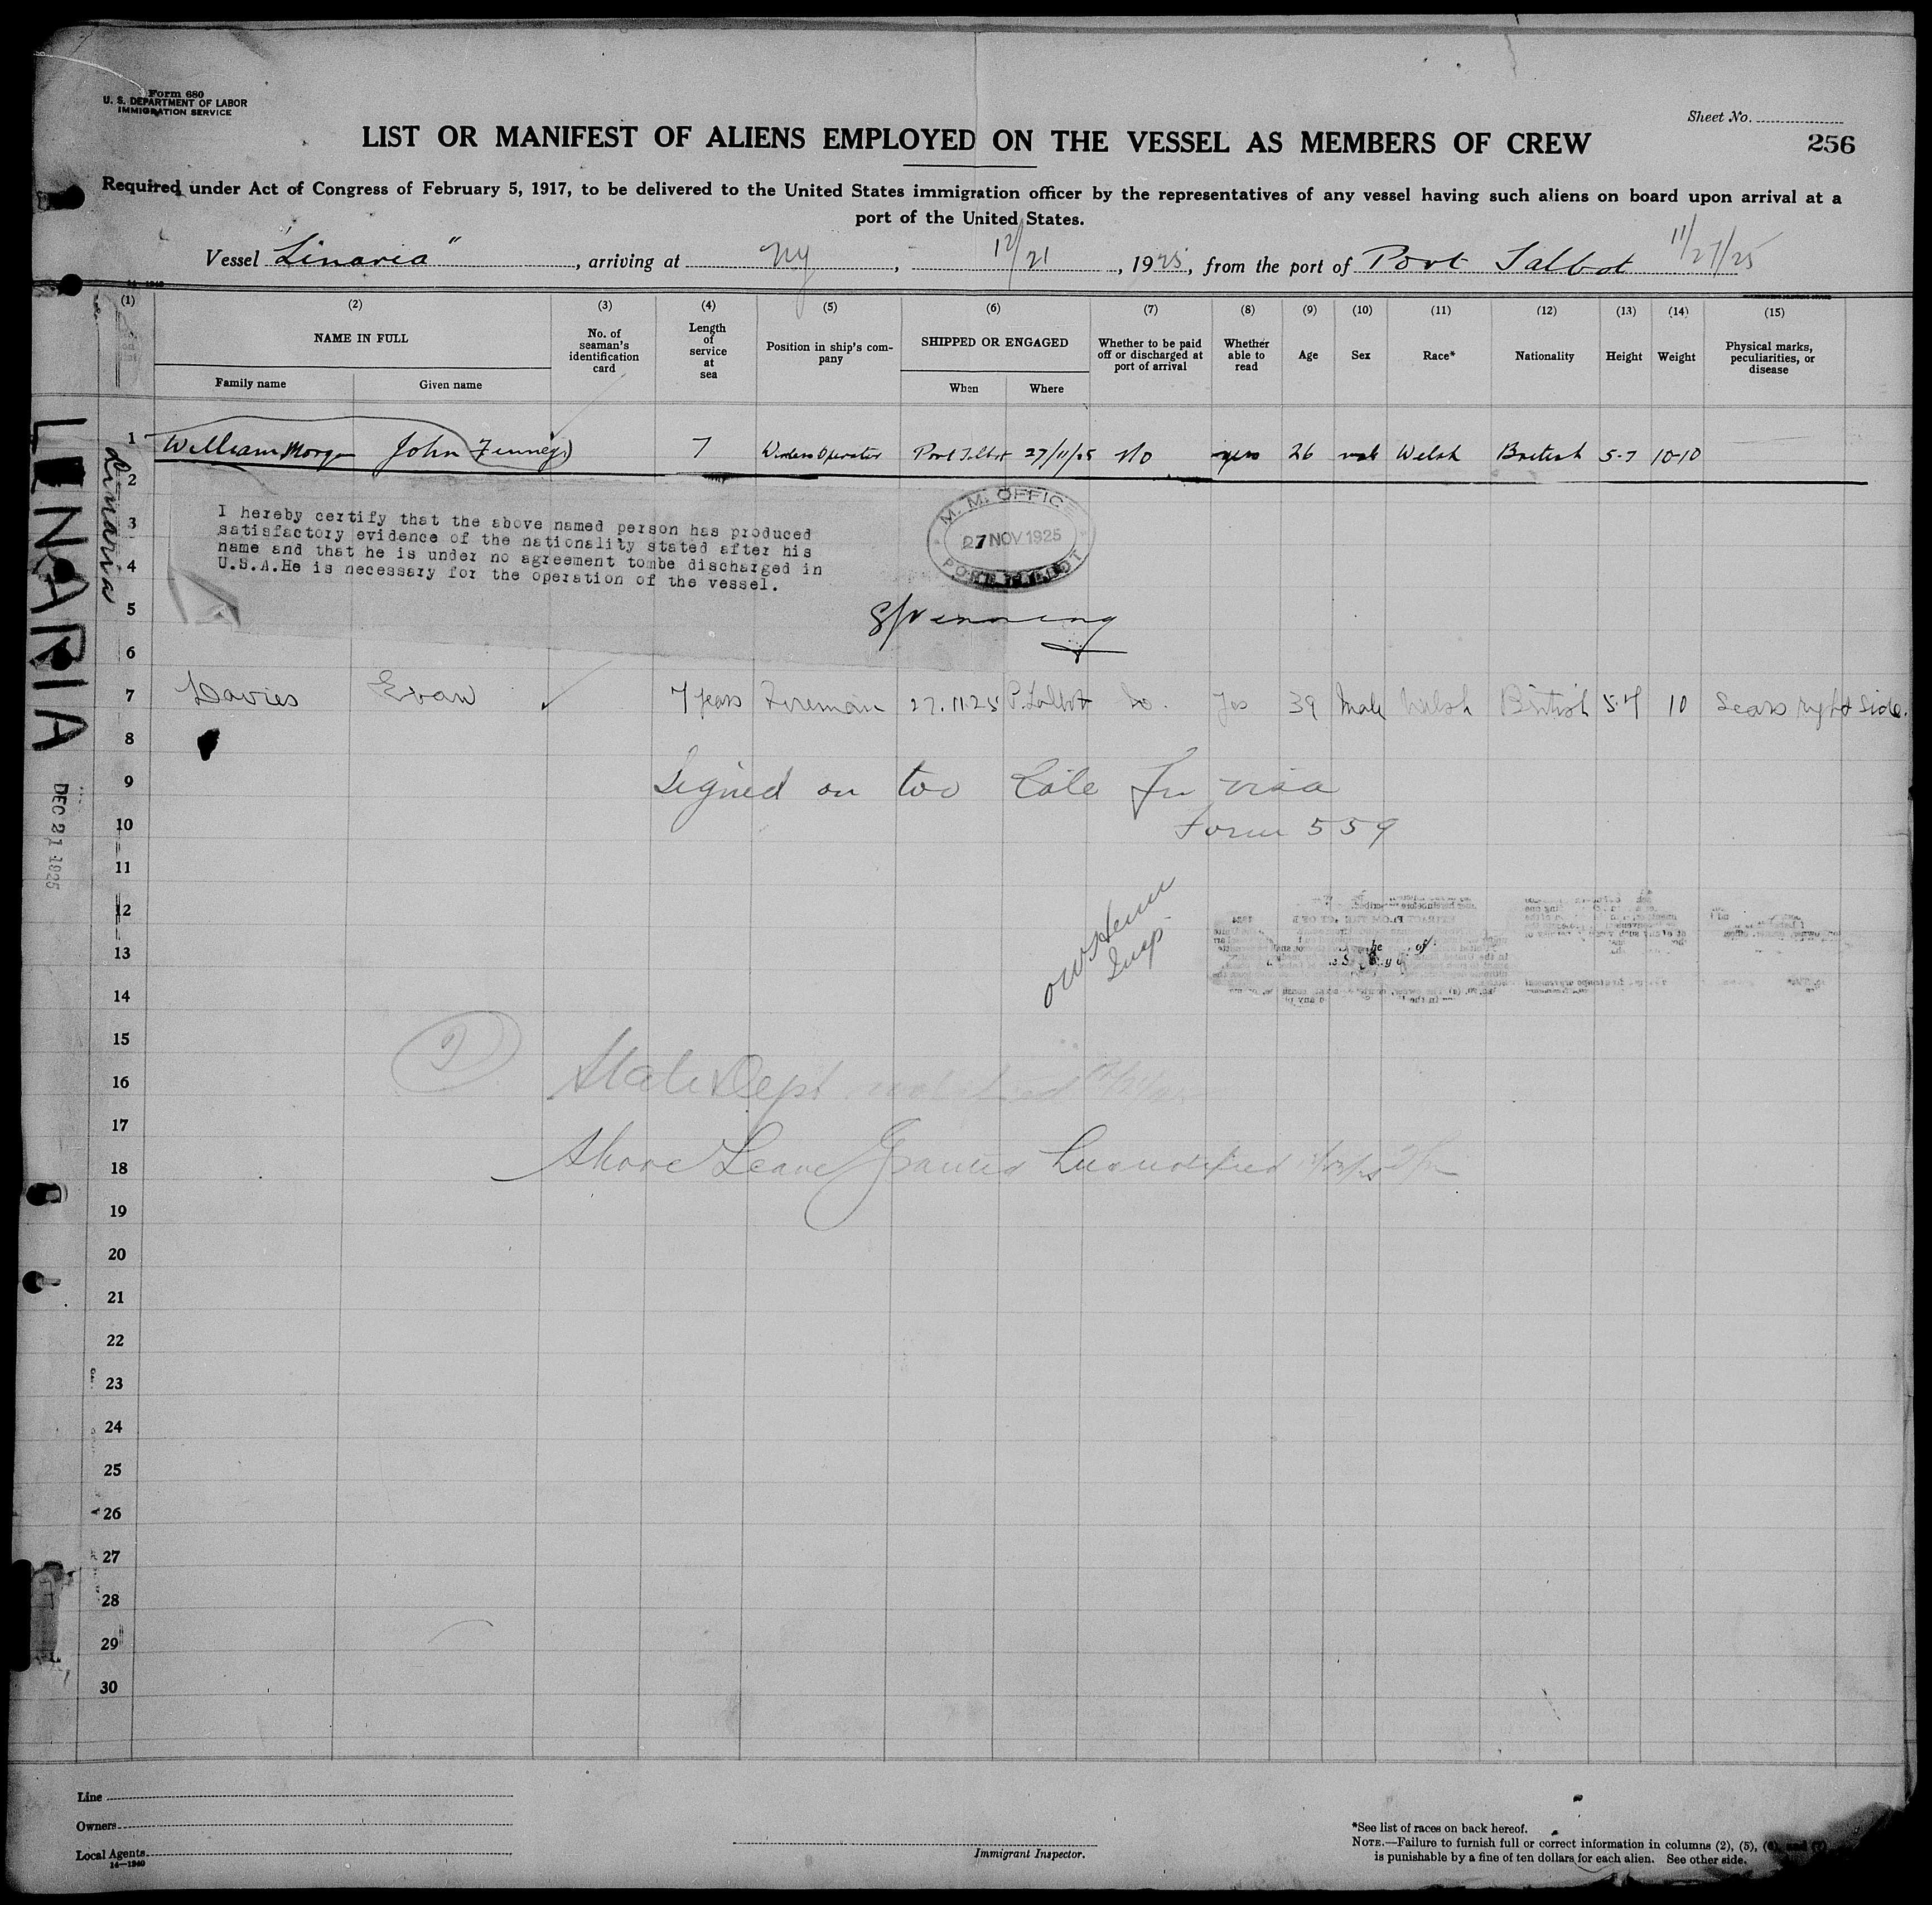 Form 680
U. S. DEPARTMENT OF LABOR
IMMIGRATION SERVICE
Sheet No.
LIST OR MANIFEST OF ALIENS EMPLOYED ON THE VESSEL AS MEMBERS OF CREW
256
Required under Act of Congress of February 5, 1917, to be delivered to the United States immigration officer by the representatives of any vessel having such aliens on board upon arrival at a
port of the United States.
Vessel "Linaria", arriving at NY, 12/21, 1925, from the port of Port Talbot 11/27/25
(1) (2) (3) (4) (5) (6) (7) (8) (9) (10) (11) (12) (13) (14) (15)
NAME IN FULL
Family name
Given name
No. of seaman's identification card
Length of service at sea
Position in ship's company
SHIPPED OR ENGAGED
When
Where
Whether to be paid off or discharged at port of arrival
Whether able to read
Age
Sex
Race*
Nationality
Height
Weight
Physical marks, peculiarities, or disease
1 William Morgan John 7 Wireless Operator Port Talbot 27/11/25 No yes 26 male Welsh British 5-7 10-10
2
I hereby certify that the above named person has produced
satisfactory evidence of the nationality stated after his
name and that he is under no agreement tombe discharged in
U.S.A.He is necessary for the operation of the vessel.
M. M. OFFICE
27 NOV 1925
PORT TALBOT
3
4
5
6
7 Davies Evan 7 years Fireman 27.11.25 P. Talbot No. Yes 39 Male Welsh British 5.7 10 Scars right side.
8
9 Signed on too late for visa
10 Form 559
11
12
13
14
Insp.
15
16 State Dept notified
17
18 Shore Leave Granted
19
20
21
22
23
24
25
26
27
28
29
30
LINARIA
Linaria
DEC 21 1925
Line
Owners
Local Agents
14—1240
Immigrant Inspector.
*See list of races on back hereof.
NOTE.—Failure to furnish full or correct information in columns (2), (5), (6), and (7)
is punishable by a fine of ten dollars for each alien. See other side.